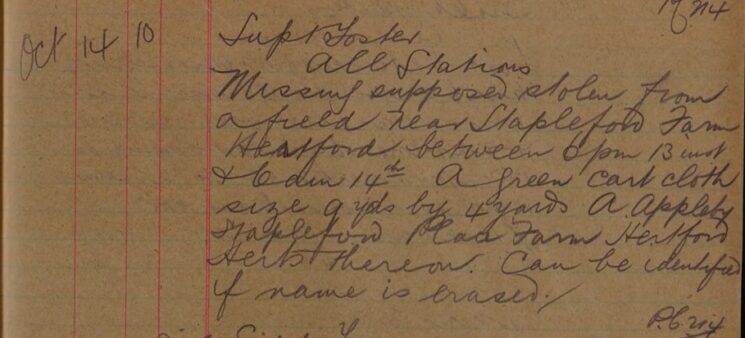 P.C. 214
Oct 14 10 Supt Foster
All Stations
Missing supposed stolen from
a field near Stapleford Farm
Hertford between 6 pm 13 inst
& 6 am 14th A green cart cloth
size 9 yds by 4 yards A. Appleby
Stapleford Place Farm Hertford
Herts thereon. Can be identified
if name is erased./
P.C. 214